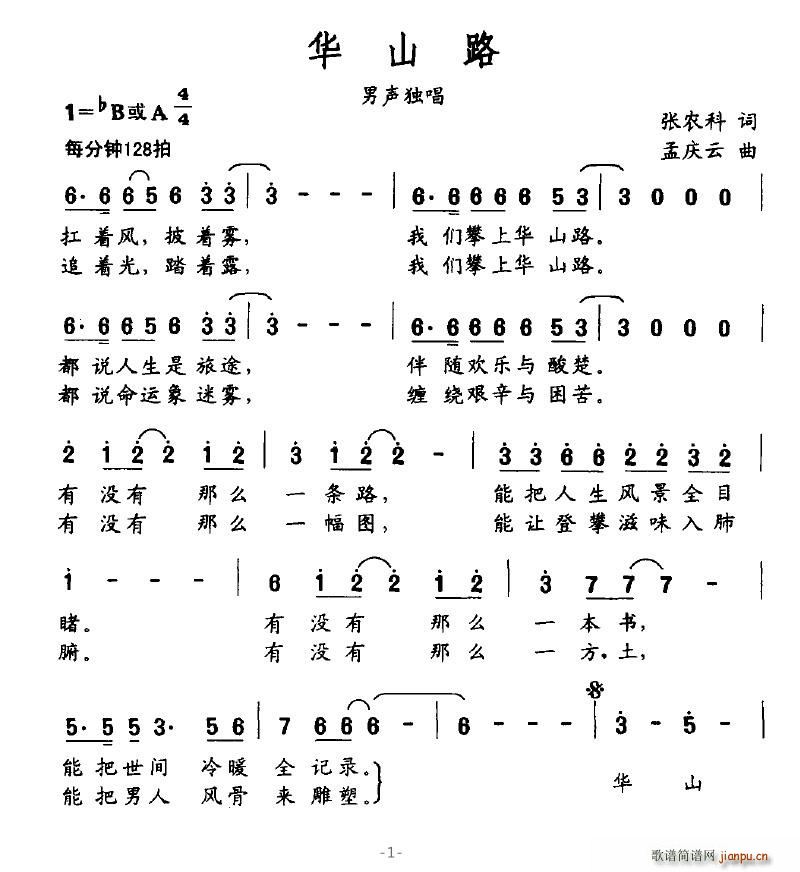 华 山 路
男声独唱
1=♭B或 A 4/4
每分钟128拍
张农科 词
孟庆云 曲
6· 6 6 5 6 3 3 | 3 - - - | 6· 6 6 6 6 5 3 | 3 0 0 0 |
扛着风，披着雾， 我们攀上华山路。
追着光，踏着露， 我们攀上华山路。
6· 6 6 6 5 6 3 3 | 3 - - - | 6· 6 6 6 6 5 3 | 3 0 0 0 |
都说人生是旅途， 伴随欢乐与酸楚。
都说命运象迷雾， 缠绕艰辛与困苦。
2 1 2 2 1 2 | 3 1 2 2 - | 3 3 6 6 2 2 3 2 |
有没有那么一条路， 能把人生风景全目
有没有那么一幅图， 能让登攀滋味入肺
1 - - - | 6 1 2 2 1 2 | 3 7 7 7 - |
睹。 有没有那么一本书，
腑。 有没有那么一方土，
5· 5 5 3· 5 6 | 7 6 6 6 - | 6 - - 𝄋 | 3 - 5 - |
能把世间冷暖全记录。
能把男人风骨来雕塑。
华 山
-1-
歌谱简谱网
jianpu.cn